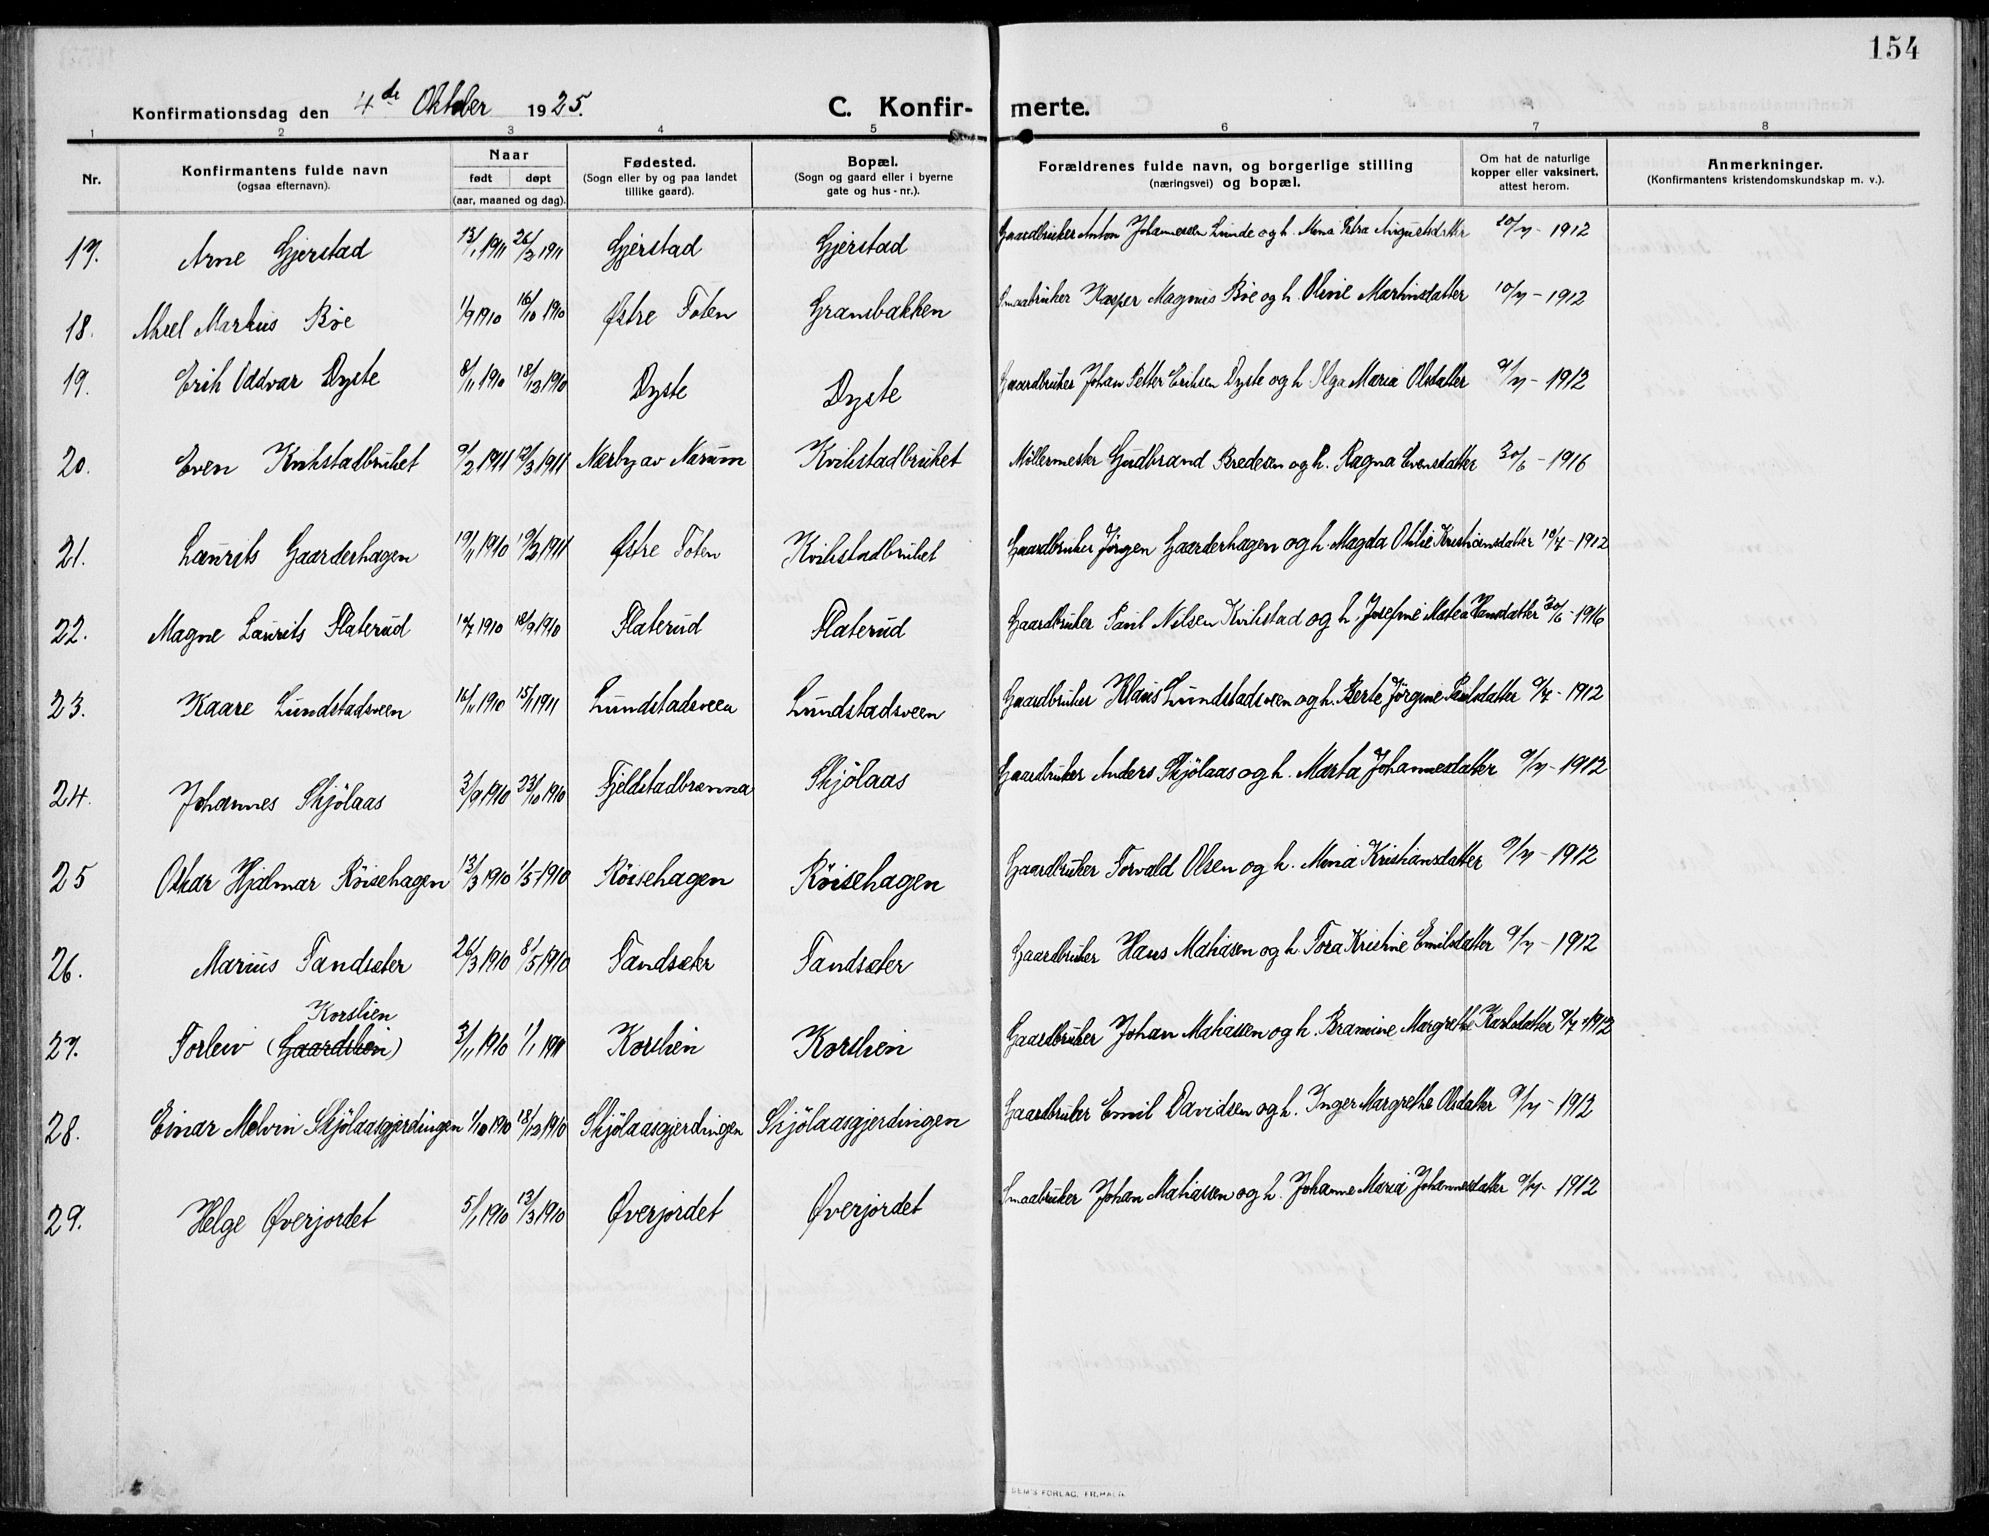 154
Konfirmationsdag den 4de Oktober 1925. C. Konfir- merte.
1 2 3 4 5 6 7 8
Nr.
Konfirmantens fulde navn
(ogsaa efternavn).
Naar
født døpt
(aar, maaned og dag).
Fødested.
(Sogn eller by og paa landet
tillike gaard).
Bopæl.
(Sogn og gaard eller i byerne
gate og hus-nr.).
Forældrenes fulde navn, og borgerlige stilling
(næringsvei) og bopæl.
Om hat de naturlige
kopper eller vaksinert,
attest herom.
Anmerkninger.
(Konfirmantens kristendomskundskap m. v.).
17. Arne Gjerstad 13/1 1911 26/2 1911 Gjerstad Gjerstad Gaardbruker Anton Johannesen Lunde og h. Mina Petra Augustsdatter 20/7 - 1912
18. Aksel Markus Bøe 1/9 1910 16/10 1910 Østre Toten Gransbakken Smaabruker Kasper Magnus Bøe og h. Oline Martinsdatter 10/7 - 1912
19. Erik Oddvar Dyste 8/11 1910 18/12 1910 Dyste Dyste Gaardbruker Johan Petter Eriksen Dyste og h. Olga Maria Olsdatter 9/7 - 1912
20. Even Kvikstadbruket 9/2 1911 12/3 1911 Nærby av Narum Kvikstadbruket Møllermester Gudbrand Bredesen og h. Ragna Evensdatter 30/6 - 1916
21. Laurits Gaarderhagen 19/11 1910 19/2 1911 Østre Toten Kvikstadbruket Gaardbruker Jørgen Gaarderhagen og h. Magda Otilie Kristiansdatter 10/7 - 1912
22. Magne Laurits Flaterud 10/7 1910 18/9 1910 Flaterud Flaterud Gaardbruker Paul Nilsen Kvikstad og h. Josefine Matea Hansdatter 30/6 - 1916
23. Kaare Lundstadsveen 16/11 1910 15/1 1911 Lundstadsveen Lundstadsveen Gaardbruker Klaus Lundstadsveen og h. Berte Jørgine Paulsdatter 9/7 - 1912
24. Johannes Skjølaas 3/9 1910 23/10 1910 Fjeldstadbrænna Skjølaas Gaardbruker Anders Skjølaas og h. Marta Johannesdatter 9/7 - 1912
25 Oskar Hjalmar Røisehagen 13/3 1910 1/5 - 1910 Røisehagen Røisehagen Gaardbruker Torvald Olsen og h. Mina Kristiansdatter 9/7 - 1912
26. Marius Tandsæter 26/3 1910 8/5 1910 Tandsæter Tandsæter Gaardbruker Hans Matiasen og h. Tora Kristine Emilsdatter 9/7 - 1912
Korslien
27. Torleiv (Gaardslien) 3/11 1910 1/1 1911 Korslien Korslien Gaardbruker Johan Matiassen og h. Bramine Margrethe Karlsdatter 9/7 - 1912
28. Einar Melvin Skjølaasgjerdingen 1/10 1910 18/12 1910 Skjølaasgjerdingen Skjølaasgjerdingen Gaardbruker Emil Davidsen og h. Inger Margrethe Olsdatter 9/7 - 1912
29. Helge Øverjordet 5/1 1910 13/3 1910 Øverjordet Øverjordet Smaabruker Johan Matiassen og h. Johanne Maria Johannesdatter 9/7 - 1912
SEM'S FORLAG, FR.HALD.